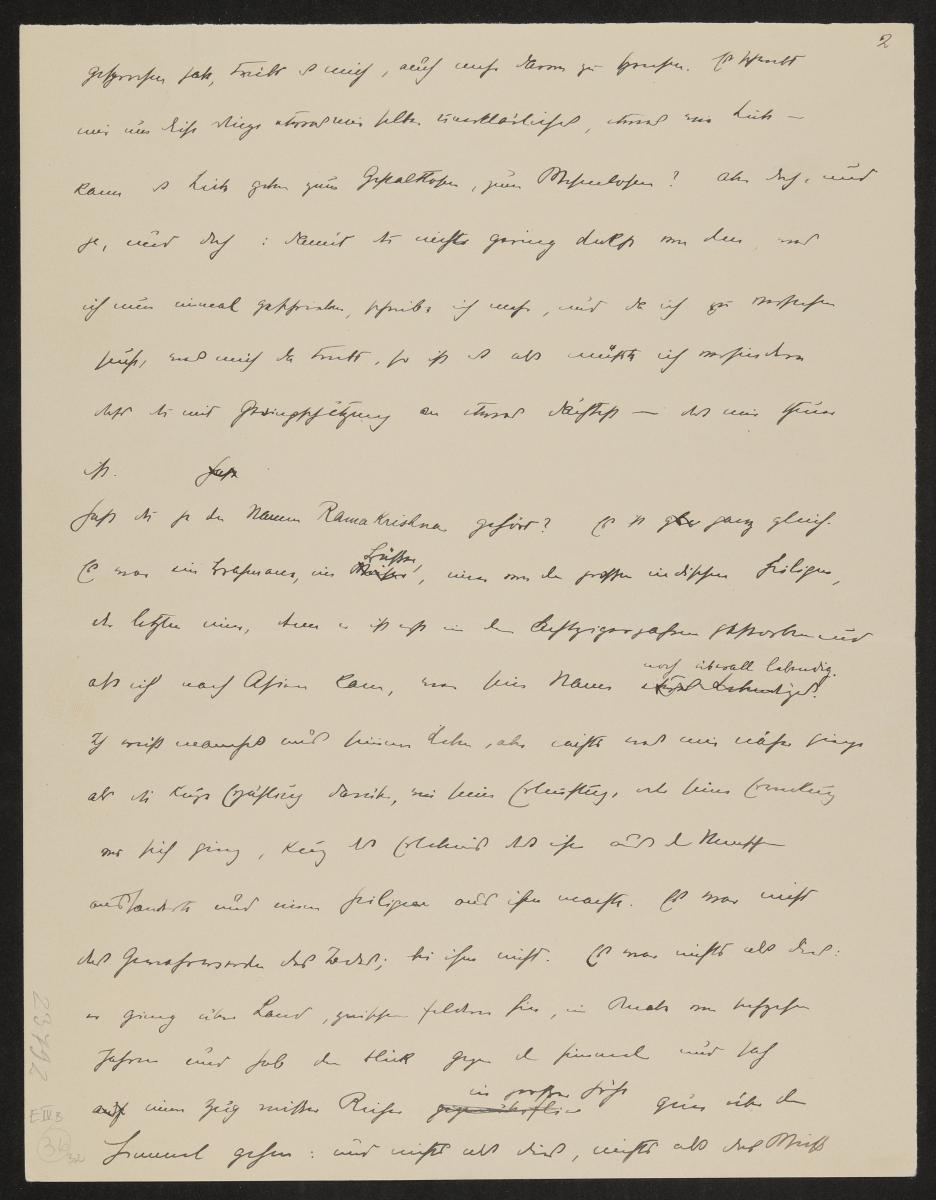 2
gesprochen hat, treibt es mich, auch mehr davon zu sprechen. Es scheint
mir um diese Dinge etwas mir selber unerklärliches, etwas von Liebe —
kann es Liebe geben zum Gestaltlosen, zum Wesenlosen? Aber doch, und
ja, und doch: damit Du nichts gering denkst von dem, was
ich nun einmal geschrieben, schreibe ich mehr, und da ich zu verstehen
suche, was mich da treibt, so ist es als müßte ich verhindern
daß Du mit Geringschätzung an etwas dächtest — das mir theuer
ist. Hast
Hast Du je den Namen Rama Krishna gehört? Es ist ganz gleich.
Es war ein Brahmane, ein Büßer, einer von den großen indischen Heiligen,
der letzten einer, denn er ist erst in den Achtzigerjahren gestorben und
noch überall lebendig.
als ich nach Asien kam, war sein Name
Ich weiß manches aus seinem Leben, aber nichts was mir näher ginge
als die kurze Erzählung darüber, wie seine Erleuchtung, oder seine Erweckung
vor sich ging, kurz das Erlebnis das ihn aus den Menschen
aussonderte und einen Heiligen aus ihm machte. Es war nicht
das Gewahrwerden des Todes, bei ihm nicht. Es war nichts als dies:
er ging über Land, zwischen Feldern hin, ein Knabe von sechzehn
Jahren und hob den Blick gegen den Himmel und sah
in großer Höhe
einen Zug weißer Reiher quer über den
Himmel gehen: und nichts als dies, nichts als das Weiß
23792
E IV B